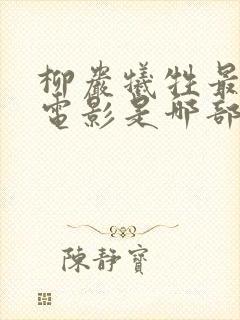 柳巖犧牲最
電影是哪部
陳靜寶